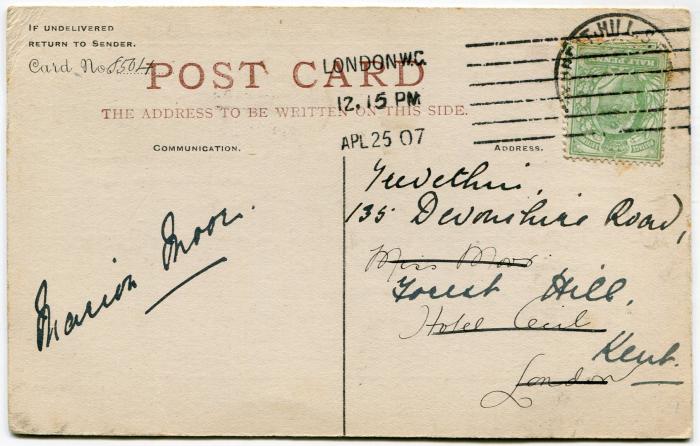 IF UNDELIVERED
RETURN TO SENDER.
Card No 8504
POST CARD
THE ADDRESS TO BE WRITTEN ON THIS SIDE.
LONDON W.C.
12.15 PM
APL 25 07
HALF PENNY
COMMUNICATION.
ADDRESS.
Marion Moor.
135 Devonshire Road,
Miss Moor
Forest Hill,
Hotel Cecil
Kent.
London